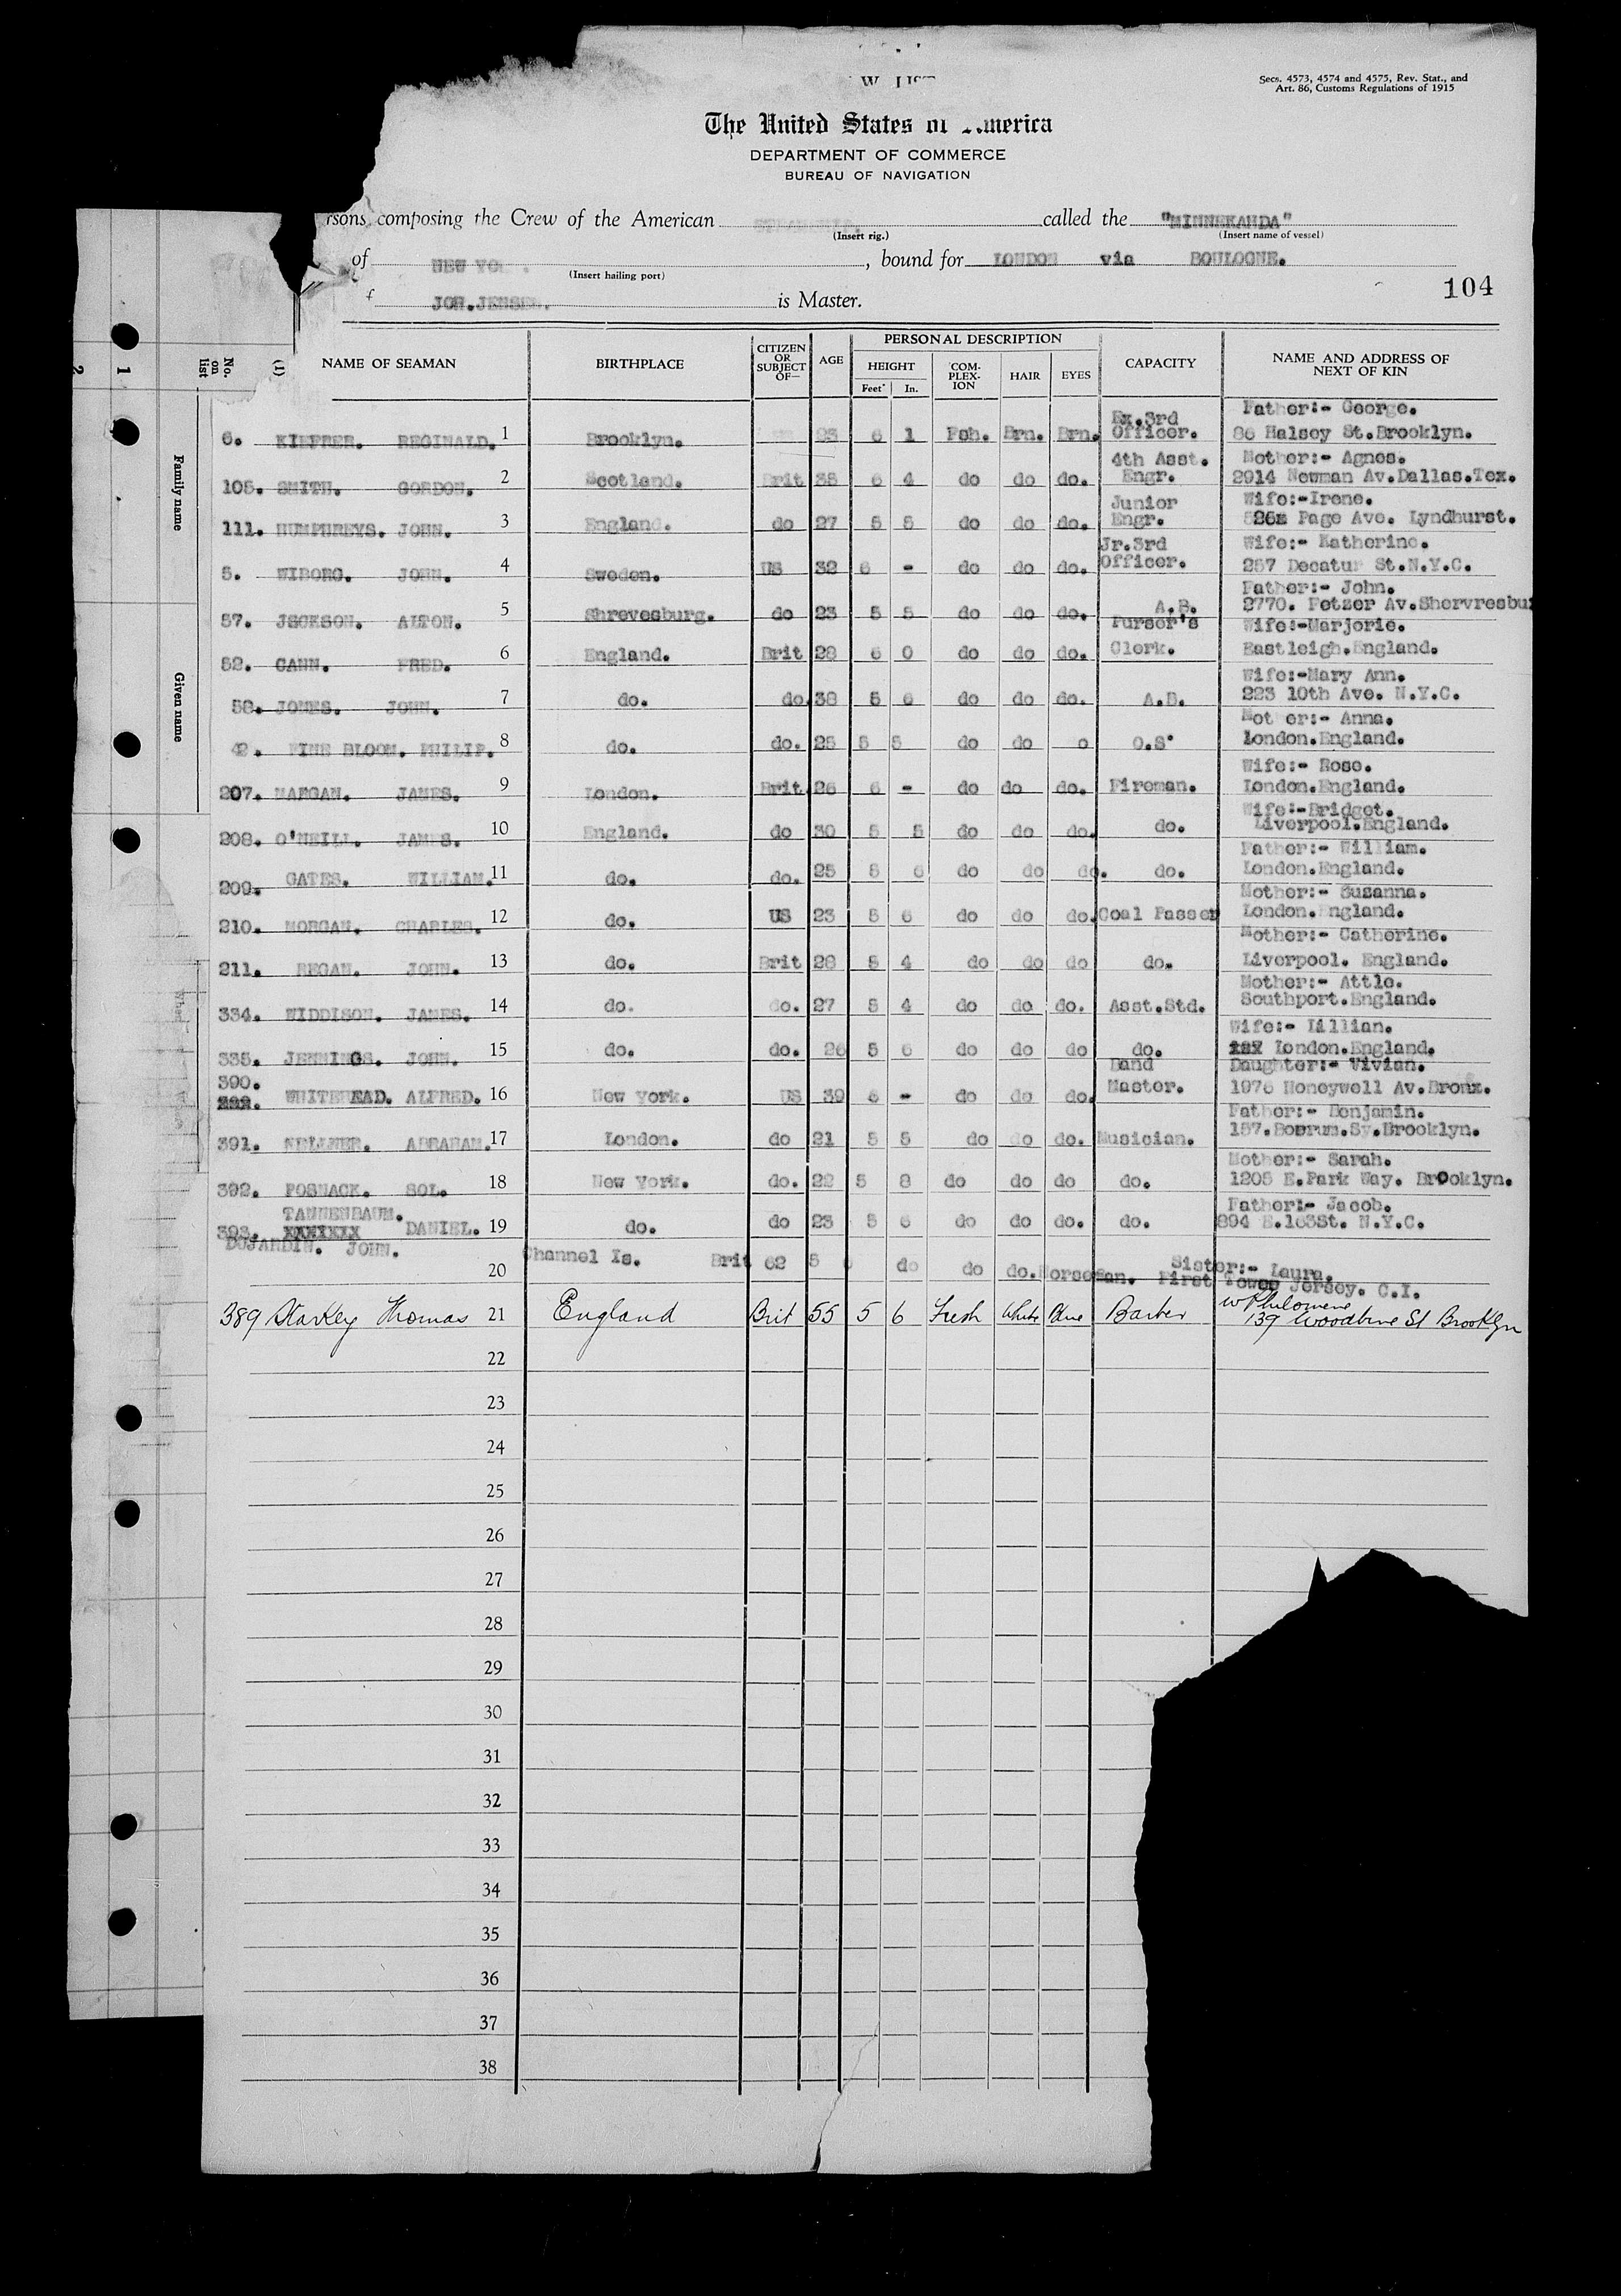 Secs. 4573, 4574 and 4575, Rev. Stat., and
Art. 86, Customs Regulations of 1915
The United States of America
DEPARTMENT OF COMMERCE
BUREAU OF NAVIGATION
rsons composing the Crew of the American called the "MINNEKAHDA"
(Insert rig.) (Insert name of vessel)
of NEW YO , bound for LONDON via BOULOGNE.
(Insert hailing port)
f JOH.JENSEN. is Master.
104
2 1 No. on list (1) Family name Given name
NAME OF SEAMAN BIRTHPLACE CITIZEN OR SUBJECT OF— AGE PERSONAL DESCRIPTION HEIGHT Feet In. COM-PLEX-ION HAIR EYES CAPACITY NAME AND ADDRESS OF NEXT OF KIN
Father:- George.
6. KIEFRER. REGINALD. 1 Brooklyn. 23 6 1 Fsh. Brn. Brn. Ex.3rd Officer. 86 Halsey St.Brooklyn.
Mother:- Agnes.
105. SMITH. GORDON. 2 Scotland. Brit 35 6 4 do do do. 4th Asst. Engr. 2914 Newman Av.Dallas.Tex.
Wife:-Irene.
111. HUMPHREYS. JOHN. 3 England. do 27 5 5 do do do. Junior Engr. Page Ave. Lyndhurst.
Wife:- Katherine.
5. WIBORG. JOHN. 4 Sweden. US 32 6 - do do do. Jr.3rd Officer. 257 Decatur St.N.Y.C.
Father:- John.
57. JSCKSON. ALTON. 5 Shrevesburg. do 23 5 5 do do do. A.B. 2770. Fetzer Av.Shervresbu
Wife:-Marjorie.
52. CANN. FRED. 6 England. Brit 28 6 0 do do do. Purser's Clerk. Eastleigh.England.
Wife:-Mary Ann.
58. JONES. JOHN. 7 do. do. 38 5 6 do do do. A.B. 223 10th Ave. N.Y.C.
Mot er:- Anna.
42. FINE BLOOM. PHILIP. 8 do. do. 25 5 5 do do o O.S. London.England.
Wife:- Rose.
207. MARGAN. JAMES. 9 London. Brit 26 6 - do do do. Fireman. London.England.
Wife:-Bridget.
208. O'NEILL. JAMES. 10 England. do 30 5 5 do do do. do. Liverpool.England.
Father:- William.
209. GATES. WILLIAM. 11 do. do. 25 5 6 do do do. do. London.England.
Mother:- Suzanna.
210. MORGAN. CHARLES. 12 do. US 23 5 6 do do do. Coal Passer London. England.
Mother:- Catherine.
211. REGAN. JOHN. 13 do. Brit 28 5 4 do do do do. Liverpool. England.
Mother:- Attle.
334. WIDDISON. JAMES. 14 do. do. 27 5 4 do do do. Asst.Std. Southport.England.
Wife:- Lillian.
335. JENNINGS. JOHN. 15 do. do. 26 5 6 do do do do. London.England.
Daughter:- Vivian.
390. WHITEHEAD. ALFRED. 16 New York. US 39 6 - do do do. Band Master. 1976 Honeywell Av.Bronx.
Father:- Benjamin.
391. NELLNER. ABRAHAM. 17 London. do 21 5 5 do do do. Musician. 157.Boerum.Sy.Brooklyn.
Mother:- Sarah.
392. POSNACK. SOL. 18 New York. do. 22 5 8 do do do do. 1205 E.Park Way. Brooklyn.
Father:- Jacob.
393. TANNENBAUM. XXXIXXX DANIEL. 19 do. do 23 5 6 do do do. do. 894 E.163St. N.Y.C.
DUJARDIN. JOHN. 20 Channel Is. Brit 62 5 do do do. Horseman. Sister:- Laura.
First Tower Jersey. C.I.
389 Starkey Thomas 21 England Brit 55 5 6 Fresh White Blue Barber w Philomene
139 Woodbine St Brooklyn
22
23
24
25
26
27
28
29
30
31
32
33
34
35
36
37
38